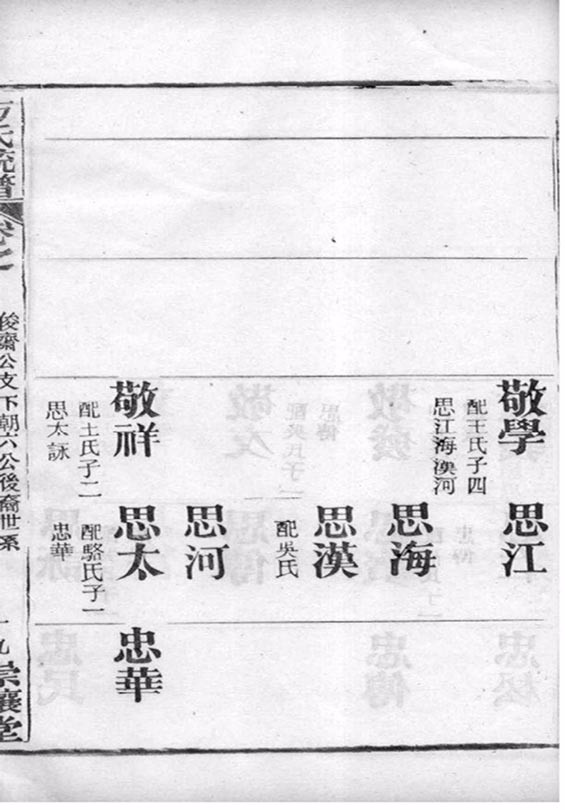 敬學
配王氏子四
思江海漢河
敬祥
配王氏子二
思太詠
思江
思海
思漢
配吳氏
思河
思太
配駱氏子一
忠華
忠華
方氏統譜
卷之
俊齋公支下朝六公後裔世系
九
崇讓堂